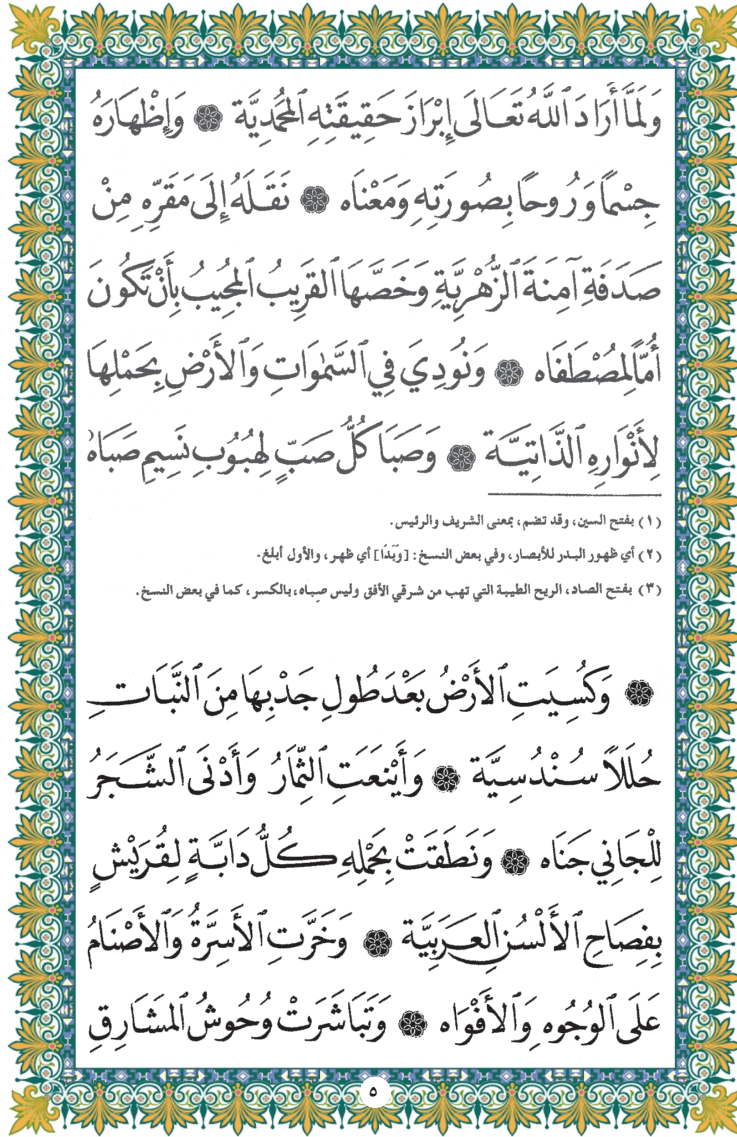 وَلَمَّا أَرَادَ ٱللَّهُ تَعَالَى إِبْرَازَ حَقِيقَتِهِ ٱلْمُحَمَّدِيَّة ۞ وَإِظْهَارَهُ
جِسْمًا وَرُوحًا بِصُورَتِهِ وَمَعْنَاه ۞ نَقَلَهُ إِلَى مَقَرِّهِ مِنْ
صَدَفَةِ آمِنَةَ ٱلزُّهْرِيَّةِ وَخَصَّهَا ٱلْقَرِيبُ ٱلْمُجِيبُ بِأَنْ تَكُونَ
أُمًّا لِمُصْطَفَاه ۞ وَنُودِيَ فِي ٱلسَّمٰوَاتِ وَٱلْأَرْضِ بِحَمْلِهَا
لِأَنْوَارِهِ ٱلذَّاتِيَّة ۞ وَصَبَا كُلُّ صَبٍّ لِهُبُوبِ نَسِيمِ صَبَاهُ
(١) بفتح السين، وقد تضم، بمعنى الشريف والرئيس.
(٢) أي ظهور البدر للأبصار، وفي بعض النسخ: [وَبَدَا] أي ظهر، والأول أبلغ.
(٣) بفتح الصاد، الريح الطيبة التي تهب من شرقي الأفق وليس صِباه، بالكسر، كما في بعض النسخ.
۞ وَكُسِيَتِ ٱلْأَرْضُ بَعْدَ طُولِ جَدْبِهَا مِنَ ٱلنَّبَاتِ
حُلَلًا سُنْدُسِيَّة ۞ وَأَيْنَعَتِ ٱلثِّمَارُ وَأَدْنَى ٱلشَّجَرُ
لِلْجَانِي جَنَاه ۞ وَنَطَقَتْ بِحَمْلِهِ كُلُّ دَابَّةٍ لِقُرَيْشٍ
بِفِصَاحِ ٱلْأَلْسُنِ ٱلْعَرَبِيَّة ۞ وَخَرَّتِ ٱلْأَسِرَّةُ وَٱلْأَصْنَامُ
عَلَى ٱلْوُجُوهِ وَٱلْأَفْوَاه ۞ وَتَبَاشَرَتْ وُحُوشُ ٱلْمَشَارِقِ
٥